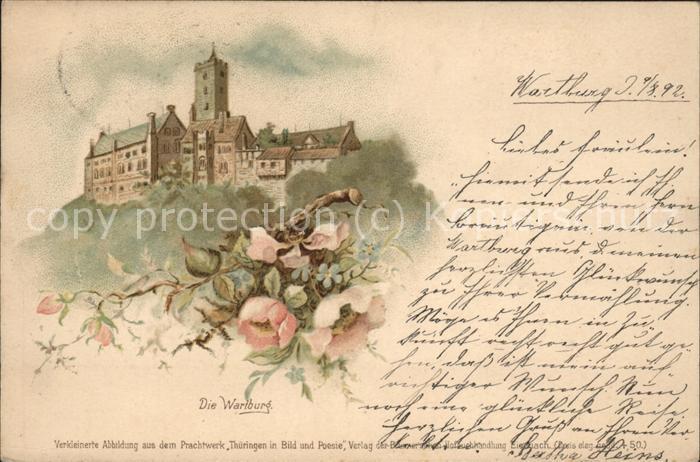 Wartburg d. 9/8.92.
Liebes Fräulein!
Hiermit sende ich Ih-
nen und Ihrem Herrn
Bräutigam von der
Wartburg aus, d. meinen
herzlichsten Glückwunsch
zu Ihrer Vermählung.
Möge es Ihnen in Zu-
kunft recht recht gut ge-
hen, daß ist mein auf-
richtiger Wunsch. Nun
noch eine glückliche Reise.
Herzlichen Gruß an Ihren
Bertha Heins.
Die Wartburg.
Verkleinerte Abbildung aus dem Prachtwerk „Thüringen in Bild und Poesie“, Verlag der Hofbuchhandlung Eisenach. (Preis eleg. geb. 4,50.)
copyright protected © Kopierschutz